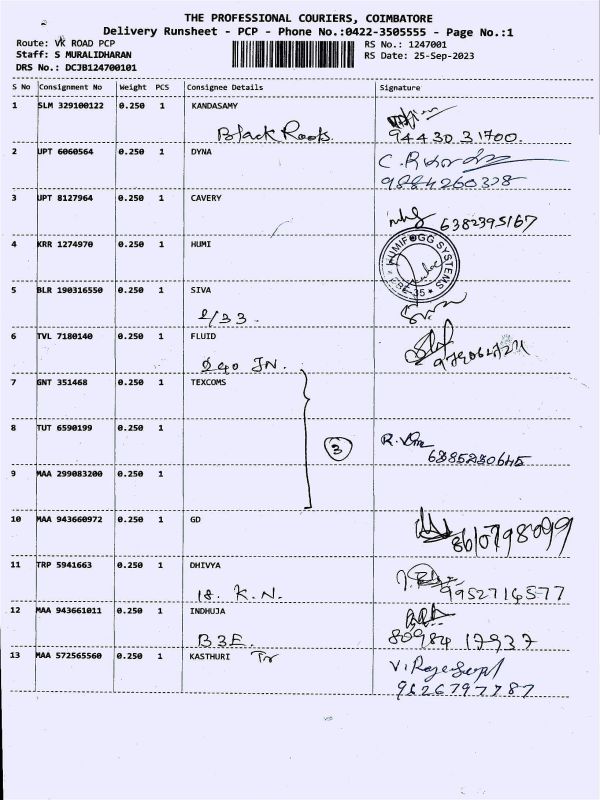 THE PROFESSIONAL COURIERS, COIMBATORE
Delivery Runsheet - PCP - Phone No.:0422-3505555 - Page No.:1
Route: VK ROAD PCP
RS No.: 1247001
Staff: S MURALIDHARAN
RS Date: 25-Sep-2023
DRS No.: DCJB124700101
S No Consignment No Weight PCS Consignee Details Signature
1 SLM 329100122 0.250 1 KANDASAMY
Black Roots. 94430 31700.
2 UPT 6060564 0.250 1 DYNA
9884260328
3 UPT 8127964 0.250 1 CAVERY
6382395167
4 KRR 1274970 0.250 1 HUMI
HUMIFOGG SYSTEMS
CBE-35
5 BLR 190316550 0.250 1 SIVA
2/33.
6 TVL 7180140 0.250 1 FLUID
240 JN.
7 GNT 351468 0.250 1 TEXCOMS
8 TUT 6590199 0.250 1
3
6385230645
9 MAA 299083200 0.250 1
10 MAA 943660972 0.250 1 GD
8610798099
11 TRP 5941663 0.250 1 DHIVYA
18. K.N. 9952714577
12 MAA 943661011 0.250 1 INDHUJA
B3E. 80984 17937
13 MAA 572565560 0.250 1 KASTHURI Tr
9626797787